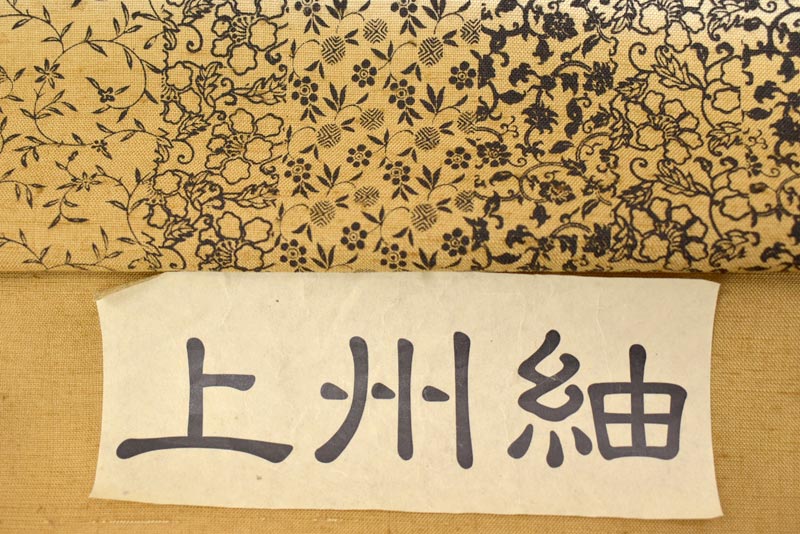 上州紬